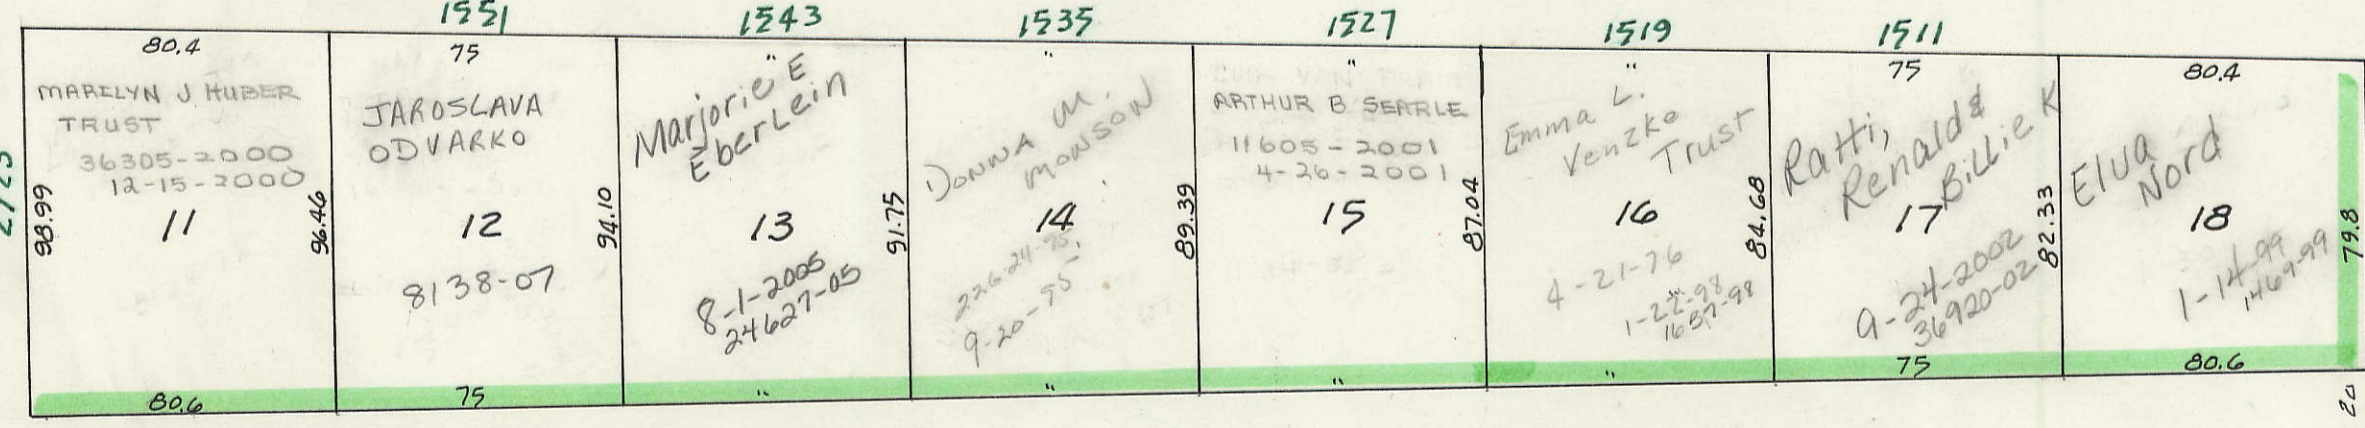 1551
1543
1535
1527
1519
1511
80.4
MARELYN J. HUBER
TRUST
36305-2000
12-15-2000
98.99
11
96.46
80.6
75
JAROSLAVA
ODVARKO
12
94.10
8138-07
75
"
Marjorie E
Eberlein
13
91.75
8-1-2005
24627-05
"
"
DONNA M.
MONSON
14
89.39
9-20-95
"
"
ARTHUR B SEARLE
11605-2001
4-26-2001
15
87.04
"
"
Emma L.
Venzke
Trust
16
84.68
4-21-76
1-22-98
1637-98
"
75
Ratti,
Renald &
Billie K
17
82.33
9-24-2002
36920-02
75
80.4
Elva
Nord
18
79.8
1-14-99
1469-99
80.6
20